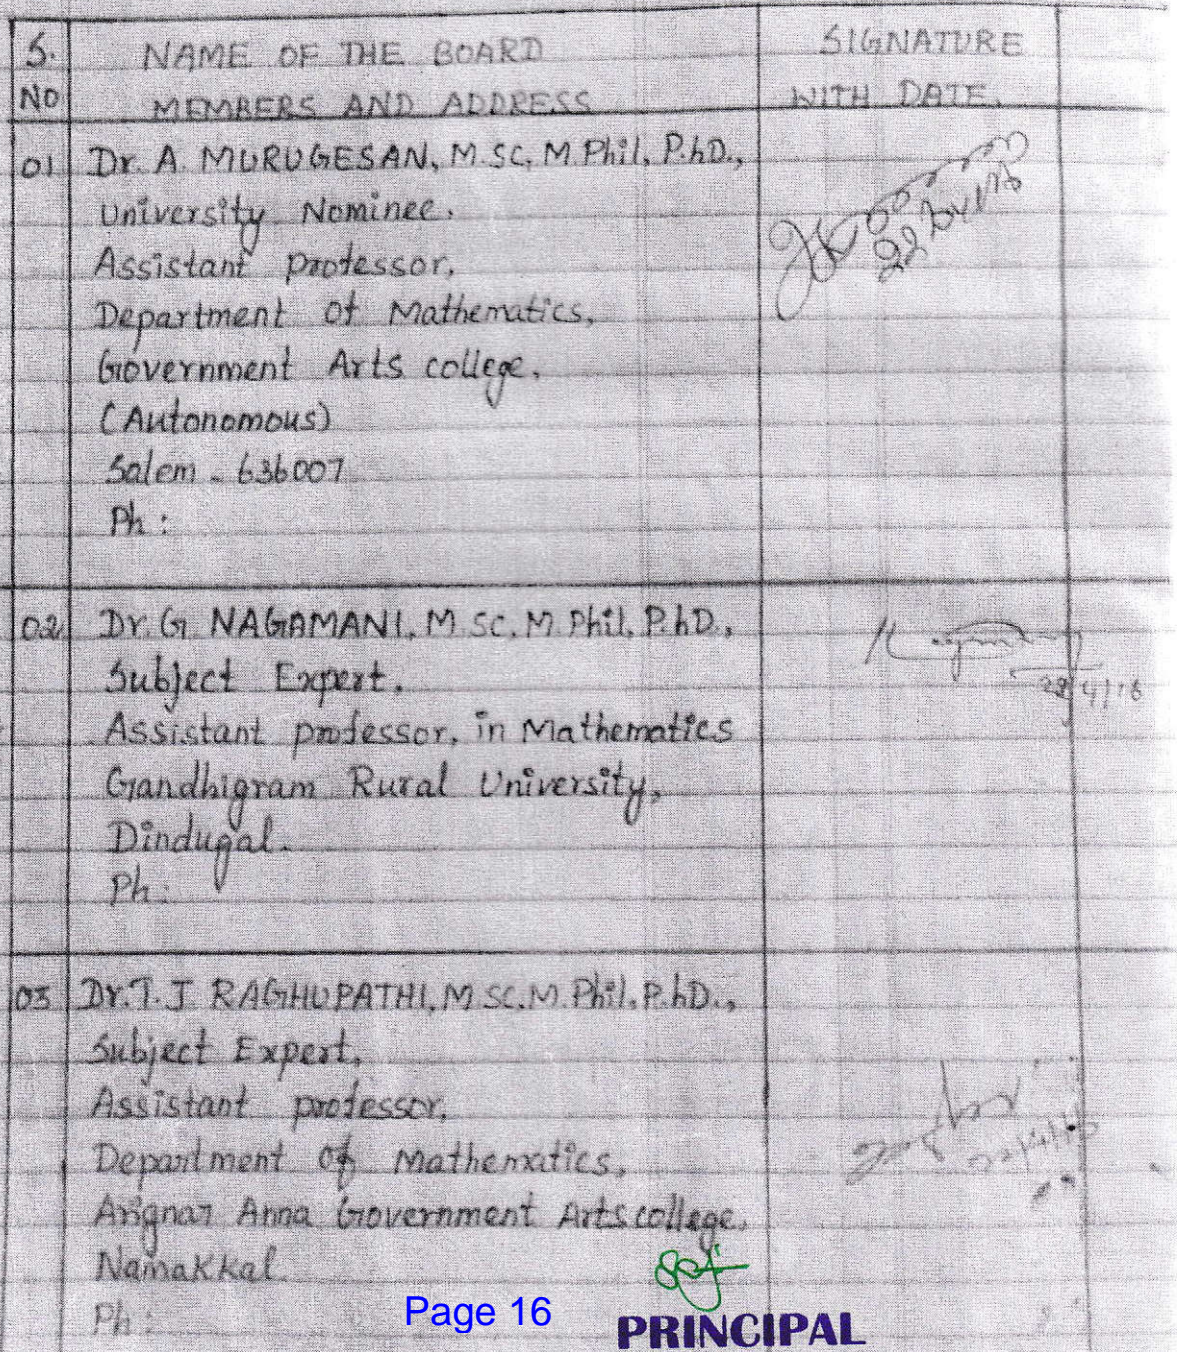 S. NO
NAME OF THE BOARD MEMBERS AND ADDRESS
SIGNATURE WITH DATE.
01
Dr. A. MURUGESAN, M.SC, M.Phil, P.hD.,
University Nominee.
Assistant professor,
Department of Mathematics,
Government Arts college.
(Autonomous)
Salem - 636007
Ph :
02
Dr. G. NAGAMANI, M.SC, M.Phil, P.hD.,
22/4/16
Subject Expert.
Assistant professor, in Mathematics
Gandhigram Rural University,
Dindugal.
Ph:
03
Dr. T. J. RAGHUPATHI, M.SC. M.Phil. P.hD.,
Subject Expert,
Assistant professor,
Department of Mathematics,
Arignar Anna Government Arts college,
Namakkal.
Ph :
Page 16
PRINCIPAL